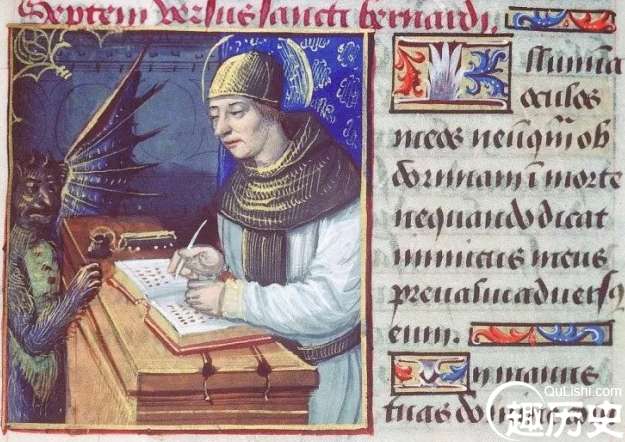 Septem versus sancti bernardi.
Illumina
oculos
meos neūq̄m ob
dormiam ī morte
nequando dicat
inimicus meus
prevalui advers9
eum.
In manus
tuas
QuLishi.com
趣历史